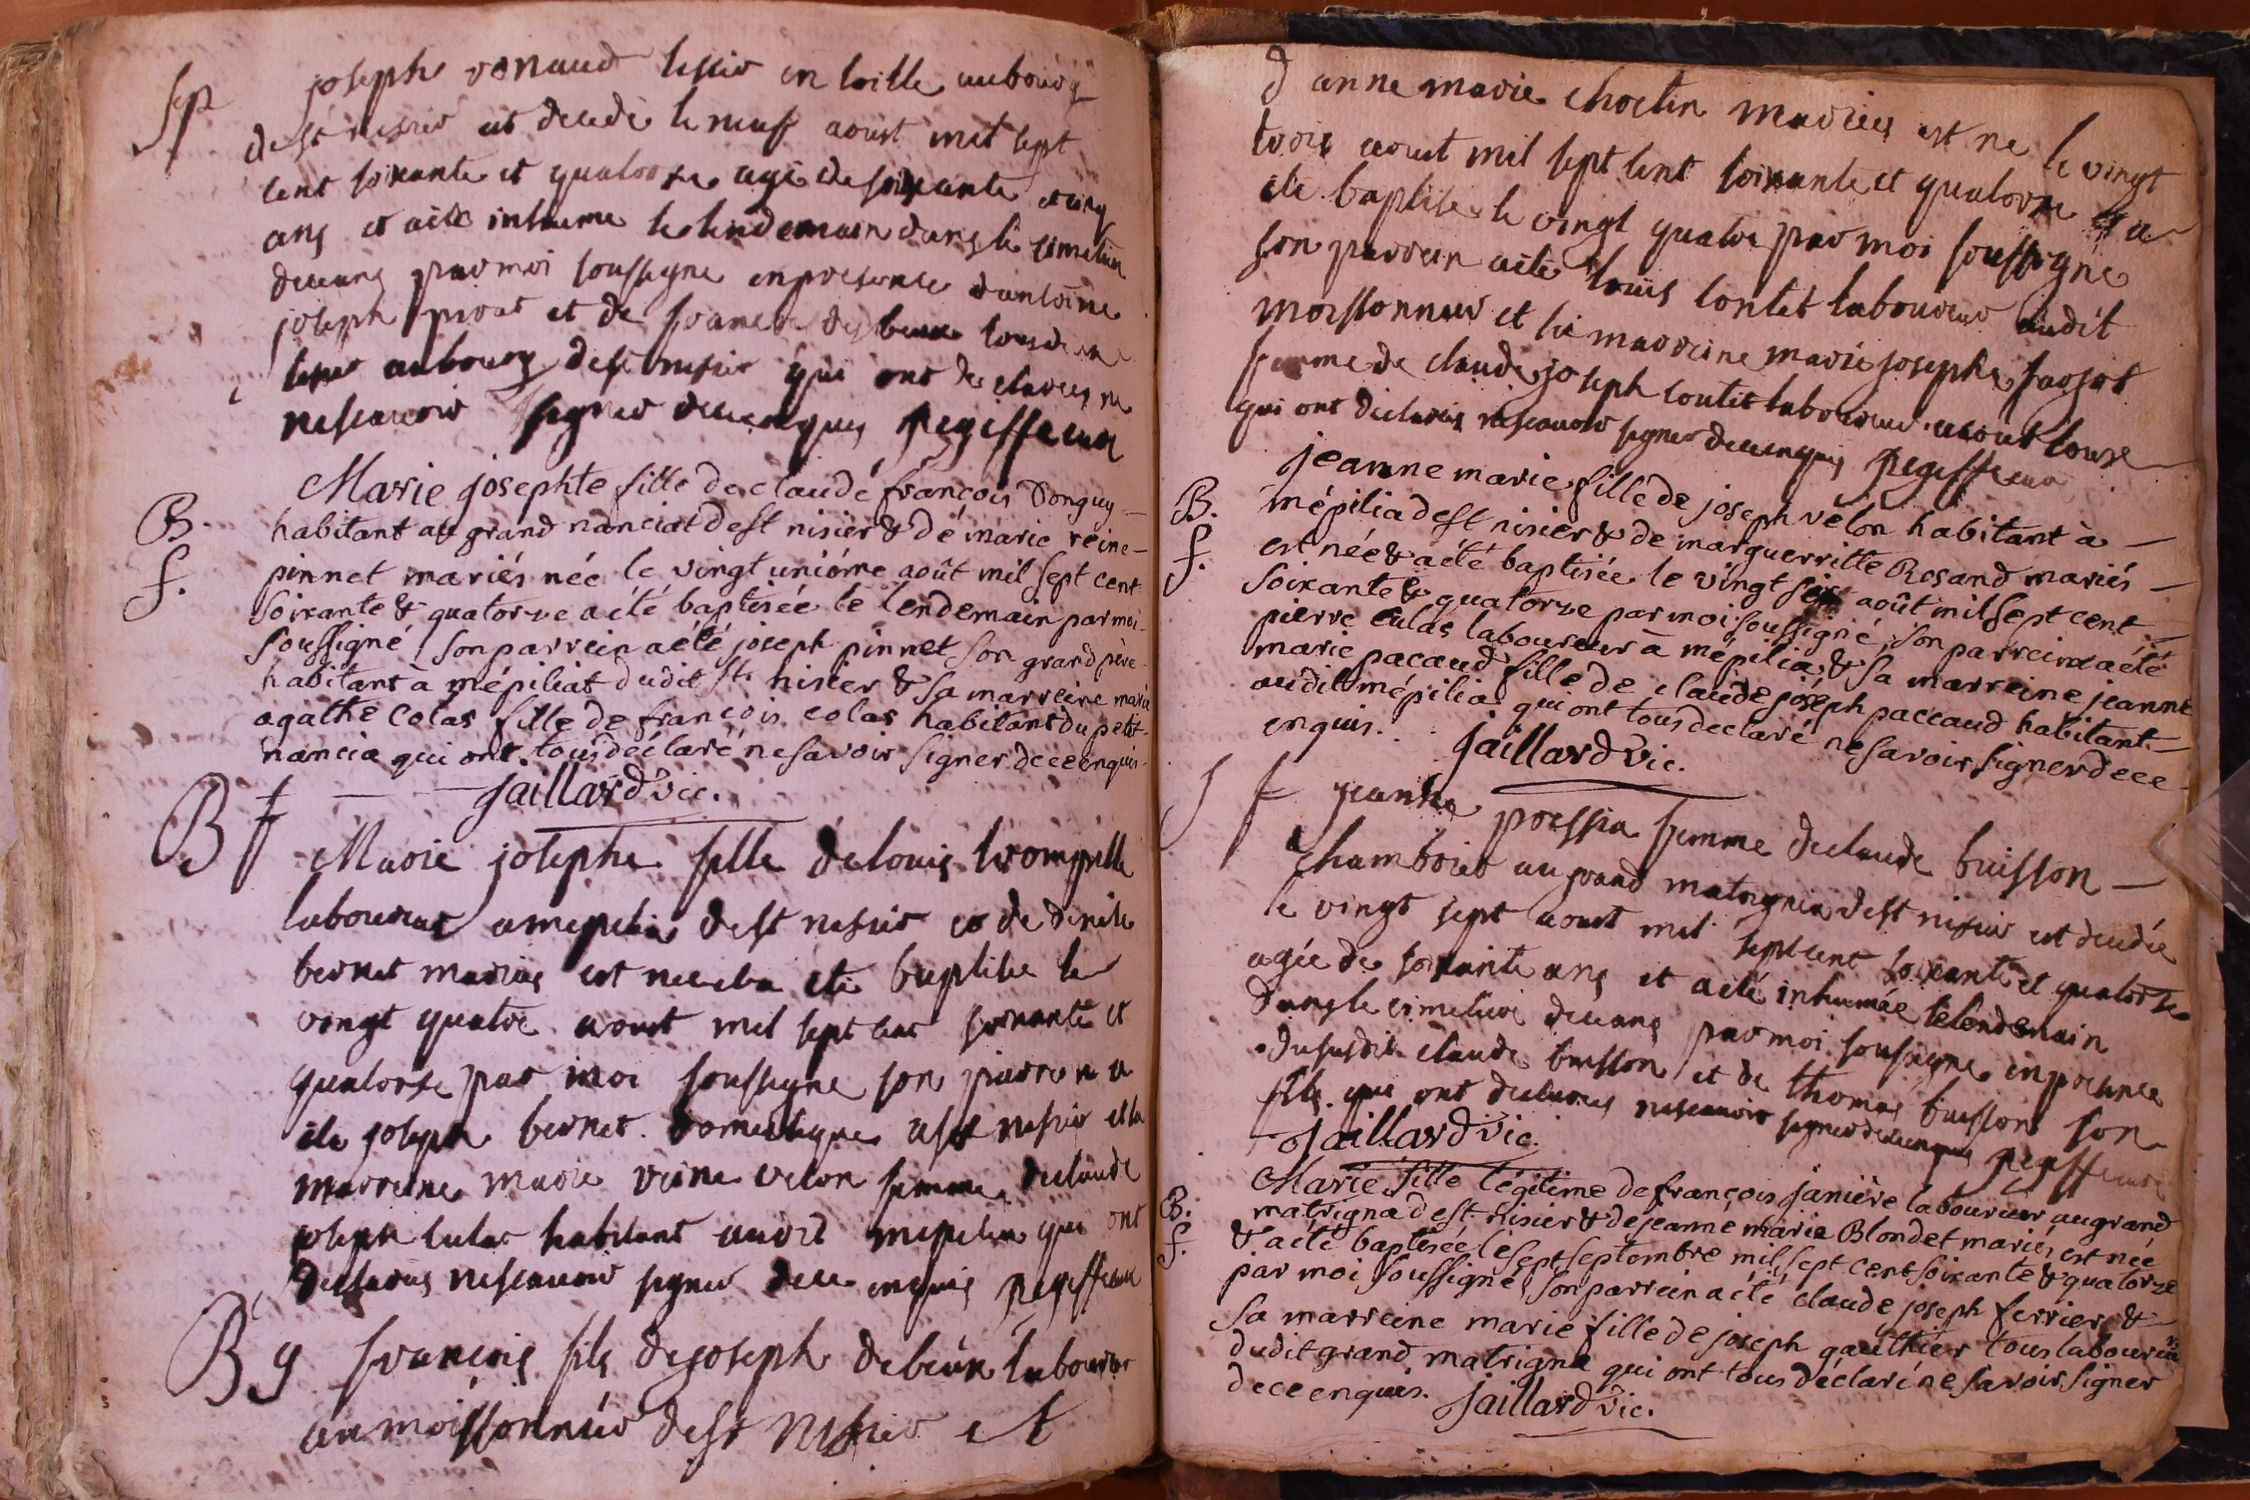 Sp joseph renaud tessier en toille au bourg
de st nisier est decedé le neuf aoust mil sept
cent soixante et quatorze agé de soixante et cinq
ans et a été inhumé le lendemain dans le cimetiere
deceans par moi soussigné en presence d'antoine
joseph prost et de francois tous de
au bourg de st nisier qui ont declarés ne
ne scavoir signer deceenquis pegisseur
Marie josephte fille de claude françois Donguy
B. habitant au grand nanciat de st nisier & de marie reine
f. pinnet mariés née le vingt unième août mil sept cent
soixante & quatorze a été baptisée le lendemain par moi
soussigné, son parrein a été joseph pinnet son grand père
habitant à mépiliat dudit st nisier & sa marreine marie
agathe colas fille de françois colas habitant du petit
nancia qui ont tous déclaré ne savoir signer deceenquis
jaillard vic.
B f Marie josephe fille de louis trompille
laboureur a mepelia de st nisier et de denise
bernet mariés est nee et a été baptisée le
vingt quatre aoust mil sept cent soixante et
quatorze par moi soussigné son parrein a
été joseph bernet domestique a st nisier et la
marreine marie reine velon femme de claude
joseph culas habitant audit mepelia qui ont
declarés ne scavoir signer dece enquis pegisseur
B g francois fils de joseph debeun laboureur
au moissonnier de st nisier et
d'anne marie choctin mariés est né le vingt
trois aoust mil sept cent soixante et quatorze et a
été baptisé le vingt quatre par moi soussigné
son parrein a été louis contet laboureur audit
moissonnier et la marreine marie josephe farjot
femme de claude joseph contet laboureur
qui ont declarés ne scavoir signer deceenquis pegisseur
jeanne marie fille de joseph vélon habitant à
B. mépilia de st nisier & de marguerritte Rosand mariés
f. est née & a été baptisée le vingt six août mil sept cent
soixante & quatorze par moi soussigné, son parrein a été
pierre culas laboureur à mépilia, & sa marreine jeanne
marie pacaud fille de claude joseph paccaud habitant
audit mépilia qui ont tous declaré ne savoir signer dece
enquis. jaillard vic.
S f jeanne poessia femme de claude buisson
chambrier au grand matrignia de st nisier est decedée
le vingt sept aoust mil sept cent soixante et quatorze
agée de soixante ans et a été inhumée le lendemain
dans le cimetiere deceans par moi soussigné en presence
du susdit claude buisson et de thomas buisson son
fils qui ont declarés ne scavoir signer deceenquis pegisseur
jaillard vic.
Marie fille légitime de françois janière laboureur au grand
B. matrigna de st. nisier & de jeanne marie Blondet mariés est née
f. & a été baptisée le sept septembre mil sept cent soixante & quatorze
par moi soussigné, son parrein a été claude joseph ferrier &
sa marreine marie fille de joseph gaulthier tous laboureurs
dudit grand matrigna qui ont tous déclaré ne savoir signer
dece enquis. jaillard vic.